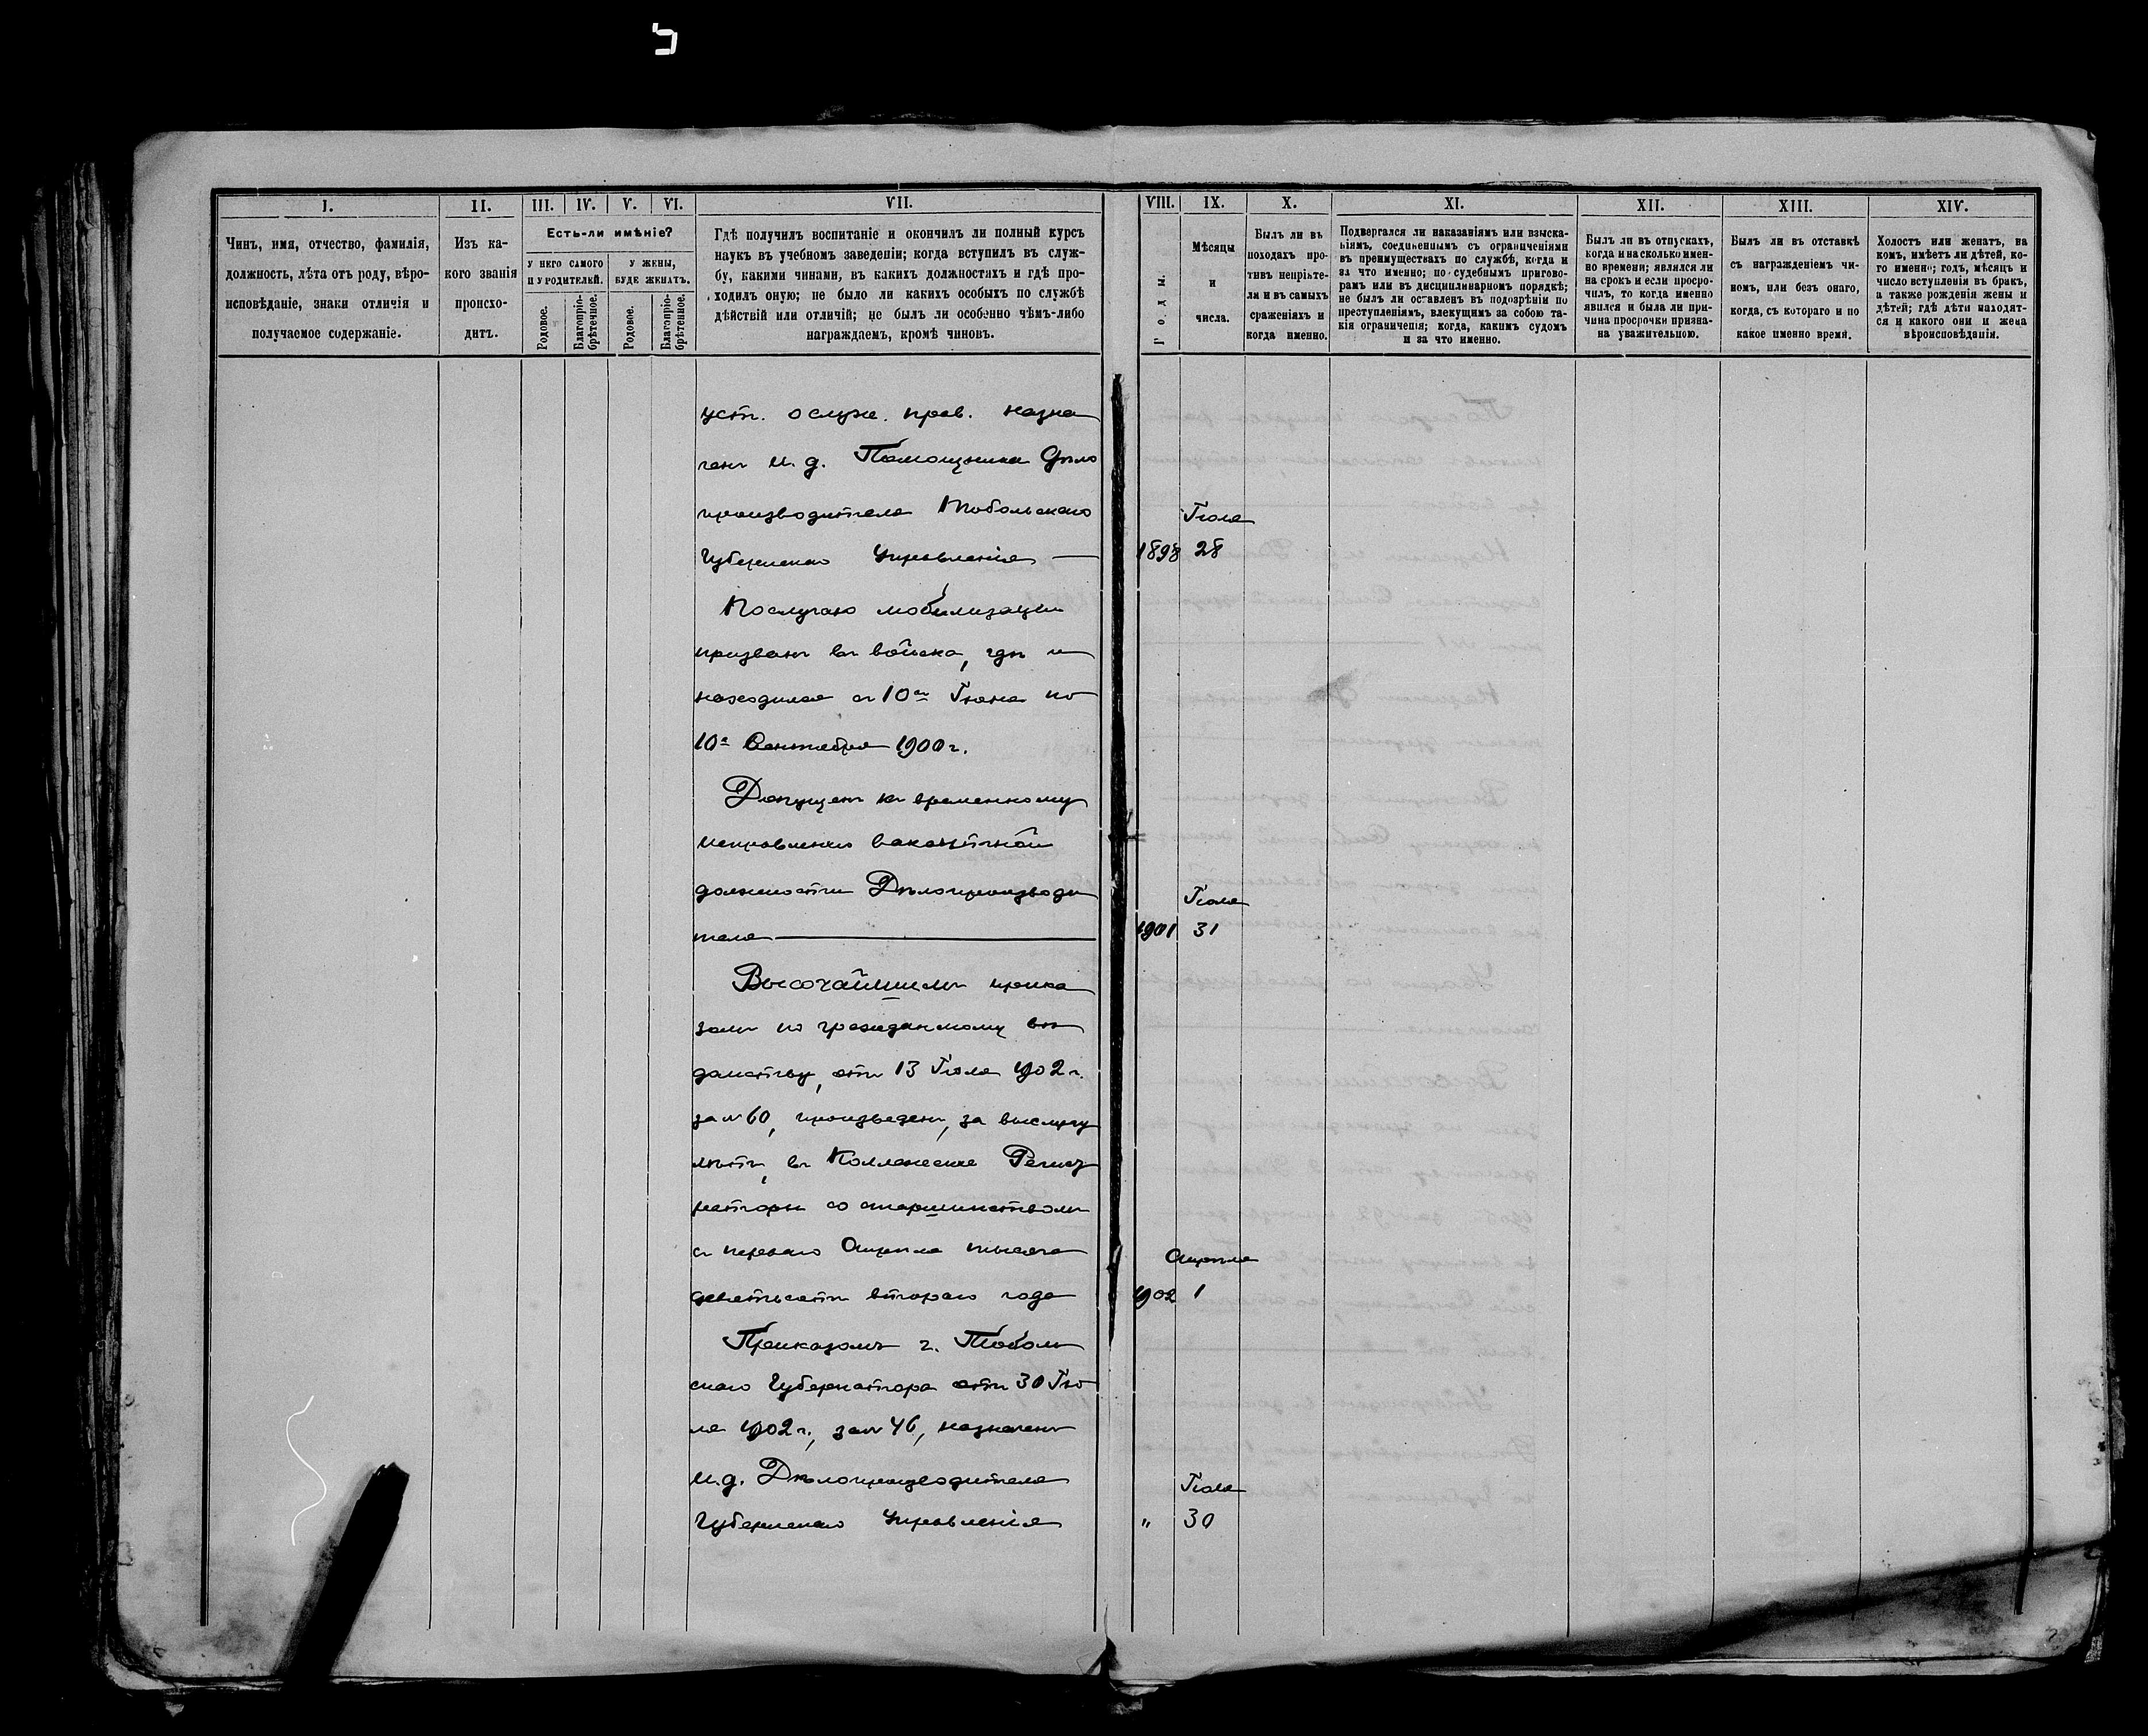 I. II. III. IV. V. VI. VII. VIII. IX. X. XI. XII. XIII. XIV.
Чинъ, имя, отчество, фамилія,
должность, лѣта отъ роду, вѣро-
исповѣданіе, знаки отличія и
получаемое содержаніе.
Изъ ка-
кого званія
происхо-
дитъ.
Есть-ли имѣніе?
У НЕГО САМОГО
И У РОДИТЕЛЕЙ.
У ЖЕНЫ,
БУДЕ ЖЕНАТЪ.
Родовое.
Благопріо-
брѣтенное.
Родовое.
Благопріо-
брѣтенное.
Гдѣ получилъ воспитаніе и окончилъ ли полный курсъ
наукъ въ учебномъ заведеніи; когда вступилъ въ служ-
бу, какими чинами, въ какихъ должностяхъ и гдѣ про-
ходилъ оную; не было ли какихъ особыхъ по службѣ
дѣйствій или отличій; не былъ ли особенно чѣмъ-либо
награждаемъ, кромѣ чиновъ.
Годы.
Мѣсяцы
и
числа.
Былъ ли въ
походахъ про-
тивъ непріяте-
ля и въ самыхъ
сраженіяхъ и
когда именно.
Подвергался ли наказаніямъ или взыска-
ніямъ, соединеннымъ съ ограниченіями
въ преимуществахъ по службѣ, когда и
за что именно; по судебнымъ пригово-
рамъ или въ дисциплинарномъ порядкѣ;
не былъ ли оставленъ въ подозрѣніи по
преступленіямъ, влекущимъ за собою та-
кія ограниченія; когда, какимъ судомъ
и за что именно.
Былъ ли въ отпускахъ,
когда и на сколько имен-
но времени; являлся ли
на срокъ и если просро-
чилъ, то когда именно
явился и была ли при-
чина просрочки призна-
на уважительною.
Былъ ли въ отставкѣ
съ награжденіемъ чи-
номъ, или безъ онаго,
когда, съ котораго и по
какое именно время.
Холостъ или женатъ, на
комъ, имѣетъ ли дѣтей, ко-
го именно; годъ, мѣсяцъ и
число вступленія въ бракъ,
а также рожденія жены и
дѣтей; гдѣ дѣти находят-
ся и какого они и жена
вѣроисповѣданія.
уст. о служ. прав. назна
ченъ и. д. Помощника Дѣло
производителя Тобольскаго
Губернскаго Управленія —
Іюля
1898 28
По случаю мобилизаціи
призванъ въ войска, гдѣ и
находился съ 10го Іюня по
10е Сентября 1900 г.
Допущенъ къ временному
исправленію вакантной
должности Дѣлопроизводи
теля —
Іюля
1901 31
Высочайшимъ прика
зомъ по гражданскому вѣ
домству, отъ 13 Іюля 1902 г.
за № 60, произведенъ, за выслугу
лѣтъ, въ Коллежскіе Регист
раторы со старшинствомъ
съ перваго Апрѣля тысяча
девятьсотъ второго года
Апрѣля
1902 1
Приказомъ г. Тоболь
скаго Губернатора отъ 30 Ію
ля 1902 г., за № 46, назначенъ
и. д. Дѣлопроизводителя
Губернскаго Управленія
Іюля
" 30